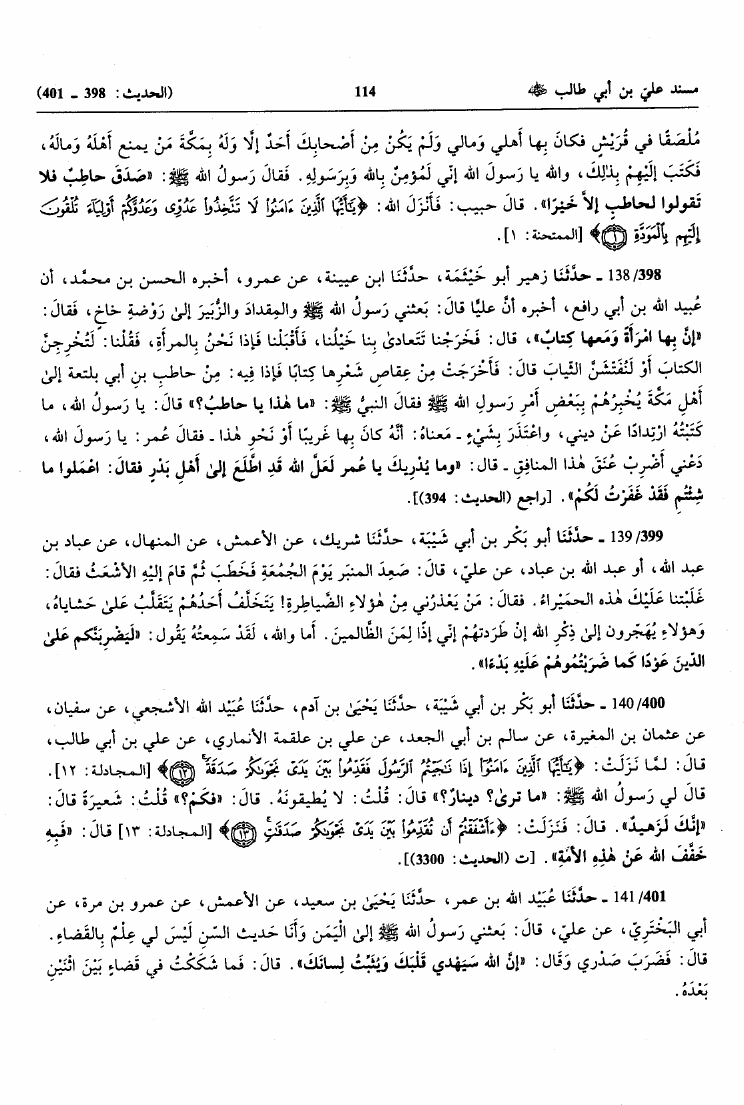 مسند عليّ بن أبي طالب ﷺ 114 (الحديث: 398 ـ 401)
مُلْصَقًا في قُرَيْشٍ فكانَ بِها أهلي وَمالي وَلَمْ يَكُنْ مِنْ أصْحابِكَ أحَدٌ إلّا وَلَهُ بِمَكّةَ مَنْ يمنع أهْلَهُ وَمالَهُ،
فَكَتَبَ إلَيْهِمْ بِذٰلِكَ، والله يا رَسولَ الله إنّي لَمُؤمِنٌ بِالله وَبِرَسولِهِ. فَقالَ رَسولُ الله ﷺ: «صَدَقَ حاطِبٌ فلا
تَقولوا لحاطبٍ إلاَّ خَيْرًا». قالَ حبيب: فَأَنْزَلَ الله: ﴿يَٰٓأَيُّهَا ٱلَّذِينَ ءَامَنُوا۟ لَا تَتَّخِذُوا۟ عَدُوِّى وَعَدُوَّكُمْ أَوْلِيَآءَ تُلْقُونَ
إِلَيْهِم بِٱلْمَوَدَّةِ ۝١﴾ [الممتحنة: ١].
138/398 ـ حدَّثَنَا زهير أبو خَيْثَمَة، حدَّثَنَا ابن عيينة، عن عمرو، أخبره الحسن بن محمَّد، أن
عُبيد الله بن أبي رافع، أخبره أنَّ عليًّا قالَ: بَعثني رَسولُ الله ﷺ والمِقدادَ والزُّبَيَرَ إلىٰ رَوْضةِ خاخٍ، فَقالَ:
«إنَّ بِها امْرَأةً وَمَعها كِتابٌ»، قال: فَخَرَجْنا تَتَعادىٰ بِنا خَيْلُنا، فَأقْبَلْنا فَإذا نَحْنُ بِالمرأةِ، فَقُلْنا: لَتُخْرِجِنَّ
الكتابَ أوْ لَنُفَتشَنَّ الثِّيابَ قالَ: فَأخْرَجَتْ مِنْ عِقاصِ شَعْرِها كِتابًا فَإذا فيهِ: مِنْ حاطبِ بنِ أبي بلتعة إلىٰ
أهْلِ مكّةَ يُخْبِرُهُمْ بِبَعْضِ أمْرِ رَسولِ الله ﷺ فقالَ النبيُّ ﷺ: «ما هٰذا يا حاطبُ؟» قالَ: يا رَسولُ الله، ما
كَتَبْتُهُ ارْتِدادًا عَنْ ديني، واعْتَذَرَ بِشَيْءٍ ـ مَعناهُ: أنَّهُ كانَ بِها غَريبًا أوْ نَحْوِ هٰذا ـ فقالَ عُمر: يا رَسولَ الله،
دَعْني أضْرِبْ عُنَقَ هٰذا المنافقِ ـ قالَ: «وما يُدْرِيكَ يا عُمر لَعَلَّ الله قَدِ اطَّلَعَ إلىٰ أهْلِ بَدْرٍ فقالَ: اعْمَلوا ما
شِئْتُم فَقَدْ غَفَرْتُ لَكُمْ». [راجع (الحديث: 394)].
139/399 ـ حدَّثَنَا أبو بَكْر بن أبي شَيْبَة، حدَّثَنَا شريك، عن الأعمش، عن المنهال، عن عباد بن
عبد الله، أو عبد الله بن عباد، عن عليّ، قالَ: صَعِدَ المنبَر يَوْمَ الجُمُعَةِ فَخَطَبَ ثُمَّ قامَ إلَيْهِ الأشْعَثُ فقالَ:
غَلَبَتْنا عَلَيْكَ هٰذه الحمَيْراءُ. فقالَ: مَنْ يَعْذُرُني مِنْ هٰؤلاءِ الضَّياطِرةِ! يَتَخَلَّفُ أحَدُهُمْ يَتَقَلَّبُ عَلىٰ حَشاياهُ،
وَهٰؤلاءِ يُهَجّرون إلىٰ ذِكْرِ الله إنْ طَرَدتهُمْ إنّي إذًا لمِنَ الظّالمينَ. أما والله، لَقَدْ سَمِعتُهُ يَقُول: «لَيَضْرِبَنَّكم عَلىٰ
الدّينَ عَوْدًا كَما ضَرَبْتُمُوهُمْ عَلَيْهِ بَدْءًا».
140/400 ـ حدَّثَنَا أبو بَكْر بن أبي شَيْبَة، حدَّثَنَا يَحْيَىٰ بن آدم، حدَّثَنَا عُبَيْد الله الأشجعي، عن سفيان،
عن عثمان بن المغيرة، عن سالم بن أبي الجعد، عن علي بن علقمة الأنماري، عن علي بن أبي طالب،
قالَ: لمّا نَزَلَتْ: ﴿يَٰٓأَيُّهَا ٱلَّذِينَ ءَامَنُوٓا۟ إِذَا نَٰجَيْتُمُ ٱلرَّسُولَ فَقَدِّمُوا۟ بَيْنَ يَدَىْ نَجْوَىٰكُمْ صَدَقَةً ۝١٢﴾ [المجادلة: ١٢].
قالَ لي رَسولُ الله ﷺ: «ما تَرىٰ؟ دينارٌ؟» قالَ: قُلْتُ: لا يُطيقونَهُ. قالَ: «فَكَمْ؟» قُلْتُ: شَعيرَةً قالَ:
«إنَّكَ لَزَهيدٌ». قالَ: فَنَزَلَتْ: ﴿ءَأَشْفَقْتُمْ أَن تُقَدِّمُوا۟ بَيْنَ يَدَىْ نَجْوَىٰكُمْ صَدَقَٰتٍ ۝١٣﴾ [المجادلة: ١٣] قالَ: «فَبِهِ
خَفَّفَ الله عَنْ هٰذِهِ الأمّةِ». [ت (الحديث: 3300)].
141/401 ـ حدَّثَنَا عُبَيْد الله بن عمر، حدَّثَنَا يَحْيَىٰ بن سعيد، عن الأعمش، عن عمرو بن مرة، عن
أبي البَخْتَرِيّ، عن عليّ، قالَ: بَعثني رَسولُ الله ﷺ إلىٰ الْيَمَن وَأَنَا حَديث السّن لَيْسَ لي عِلْمٌ بِالقَضاءِ.
قالَ: فَضَرَبَ صَدْري وَقالَ: «إنَّ الله سَيَهْدي قَلْبَكَ وَيُثَبِّتُ لِسانَكَ». قالَ: فَما شكَكْتُ في قَضاءٍ بَيْنَ اثْنَيْنِ
بَعْدَهُ.